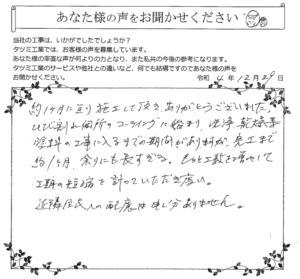 あなた様の声をお聞かせください
当社の工事は、いかがでしたでしょうか？
タツミ工業では、お客様の声を募集しています。
あなた様の率直な声が何よりの力となり、また私共の今後の参考になります。
タツミ工業のサービスや他社との違いなど、何でも結構ですのであなた様の声を
お聞かせください。
令和 4年 12月 29日
約1ヶ月に亘り施工して頂きありがとうございました。
ひび割れ個所のコーキングに始まり、洗浄、乾燥
塗料の工事に入るまでの期間がありますが、完工まで
約1ヶ月、余りにも長すぎる。もっと工数を増やして
工期の短縮を計っていただき度い。
近隣住民への配慮は申し分ありません。